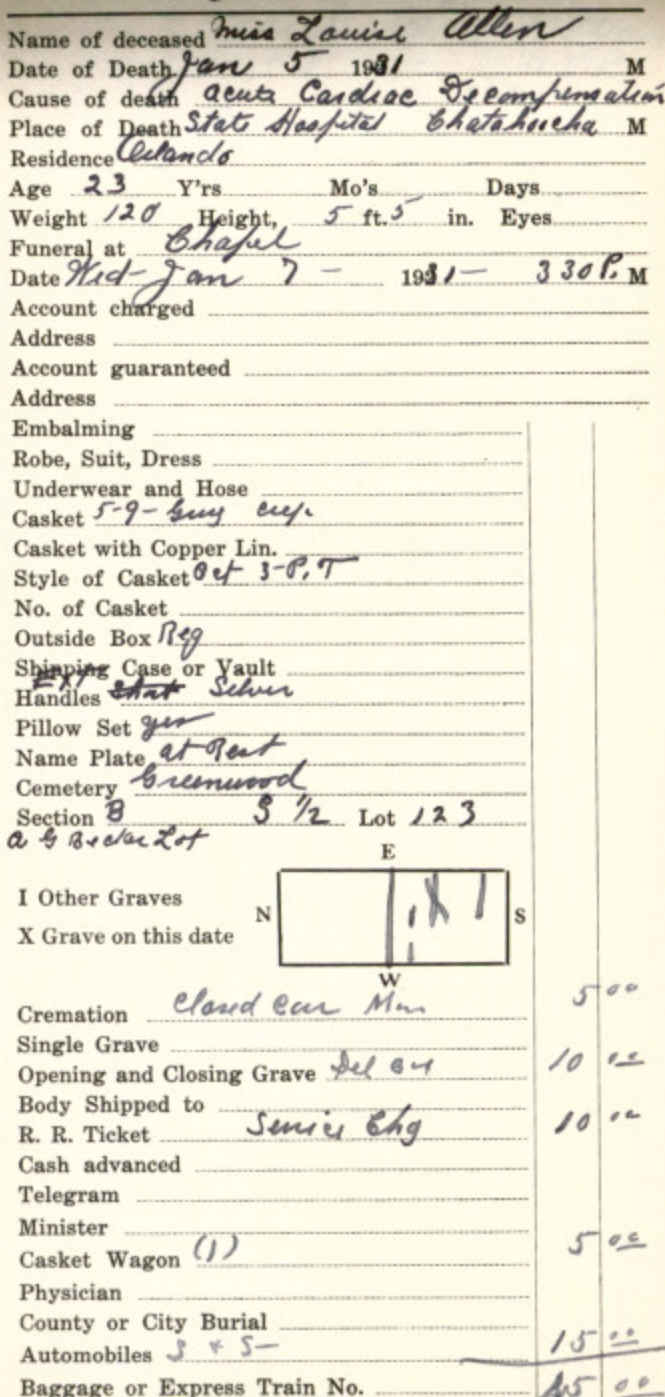 Name of deceased Miss Louise Allen
Date of Death Jan 5 1931 M
Cause of death acute Cardiac Decompensation
Place of Death State Hospital Chatahoocha M
Residence Orlando
Age 23 Y'rs Mo's Days
Weight 120 Height, 5 ft. 5 in. Eyes
Funeral at Chapel
Date Wed- Jan 7 - 1931- 3 30 P. M
Account charged
Address
Account guaranteed
Address
Embalming
Robe, Suit, Dress
Underwear and Hose
Casket 5-9-
Casket with Copper Lin.
Style of Casket Oct 3-P.T
No. of Casket
Outside Box Reg
Shipping Case or Vault
Handles Ext Silver
Pillow Set yes
Name Plate at Rest
Cemetery Greenwood
Section B S 1/2 Lot 123
A G Becker Lot
E
I Other Graves
N S
X Grave on this date
W
Cremation Closed Car 5 00
Single Grave
Opening and Closing Grave 10 00
Body Shipped to
R. R. Ticket Service Chg 10 00
Cash advanced
Telegram
Minister
Casket Wagon (1) 5 00
Physician
County or City Burial
Automobiles 3 + 5- 15 00
Baggage or Express Train No. 45 00